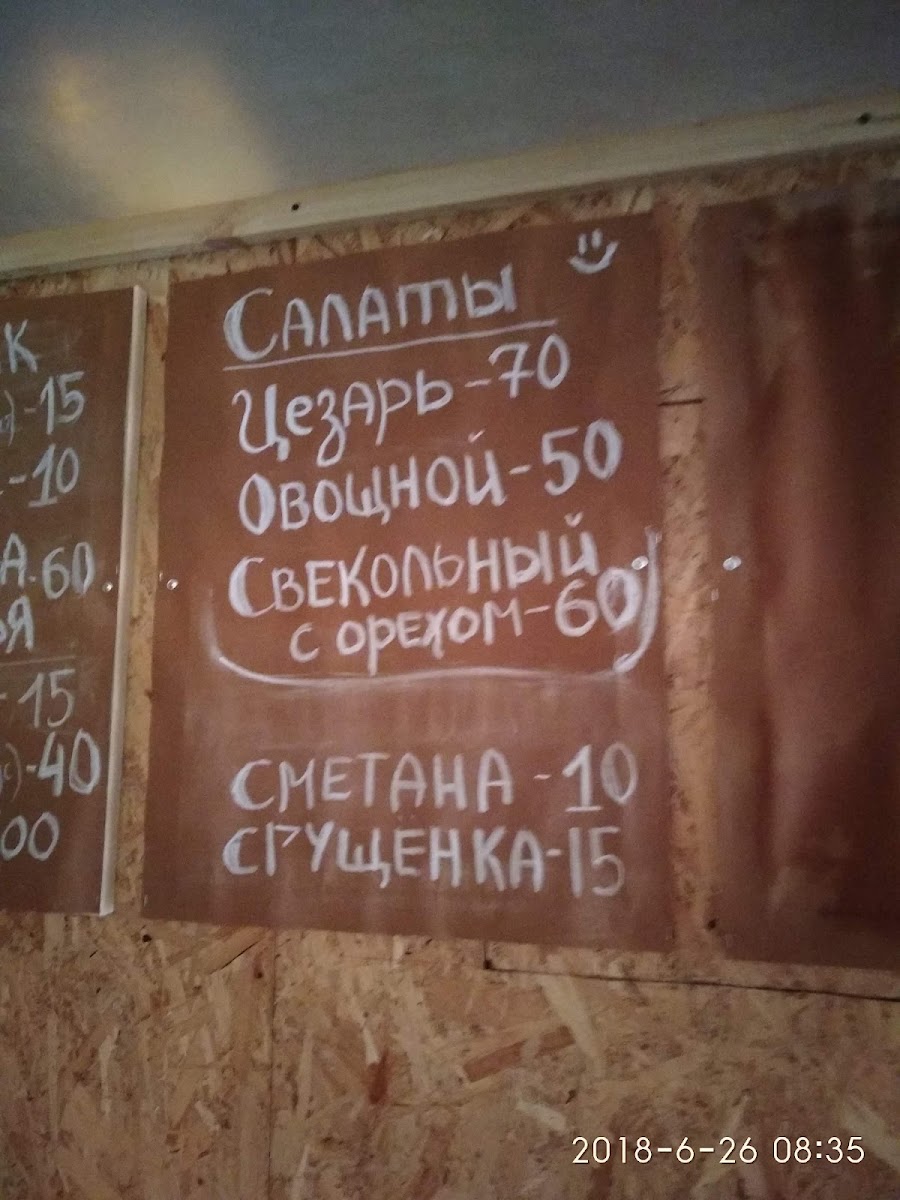 К
-15
-10
А-60
-15
-40
00
Салаты
Цезарь-70
Овощной-50
Свекольный
с орехом-60
СМЕТАНА-10
СГУЩЁНКА-15
2018-6-26 08:35